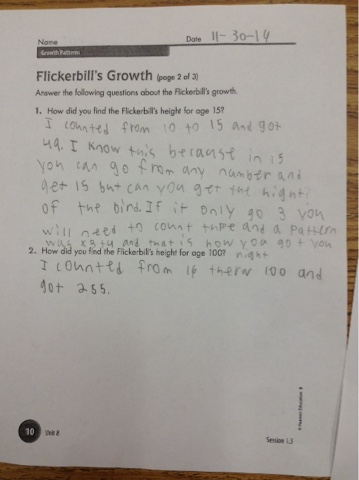 Name
Date 11-30-14
Growth Patterns
Flickerbill's Growth (page 2 of 3)
Answer the following questions about the Flickerbill's growth.
1. How did you find the Flickerbill's height for age 15?
I counted from 10 to 15 and got
49. I know this because in 15
you can go from any number and
get 15 but can you get the hight
of the bird. If it only go 3 you
will need to count thre and a pattern
was x3+4 and that is how you got you
hight
2. How did you find the Flickerbill's height for age 100?
I counted from 16 therw 100 and
got 255.
10 Unit 8
Session 1.3
© Pearson Education 8